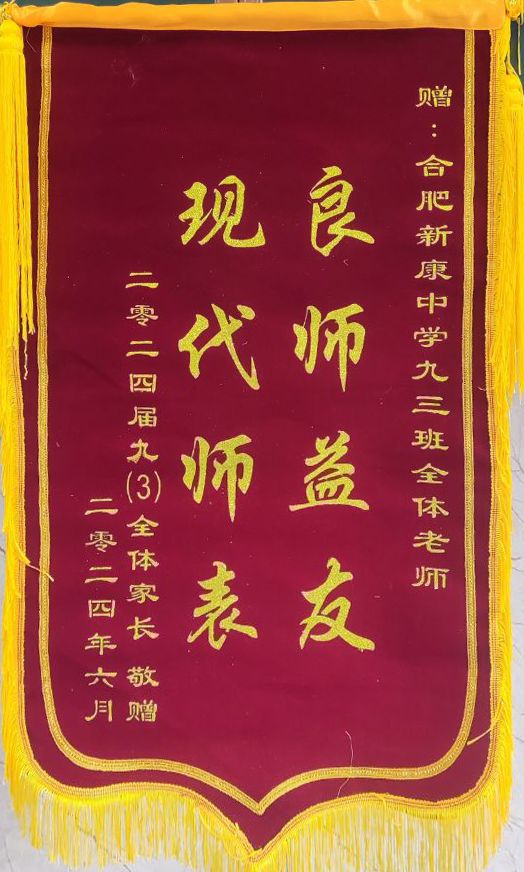 赠：合肥新康中学九三班全体老师
良师益友
现代师表
二零二四届九(3)全体家长 敬赠
二零二四年六月